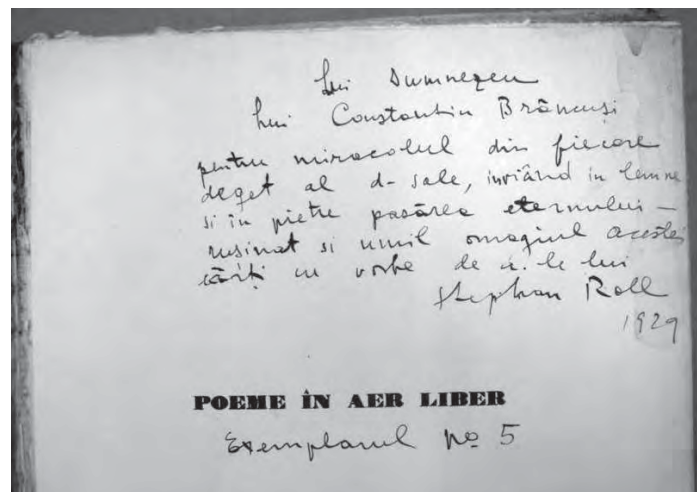 Lui Dumnezeu
Lui Constantin Brâncuși
pentru miracolul din fiecare
deget al d-sale, inviând in lemne
si in pietre pasărea eternului –
rusinat si umil omagiul acestei
cărți cu vorbe de a. le lui
Stephan Roll
1929
POEME ÎN AER LIBER
Exemplarul No 5